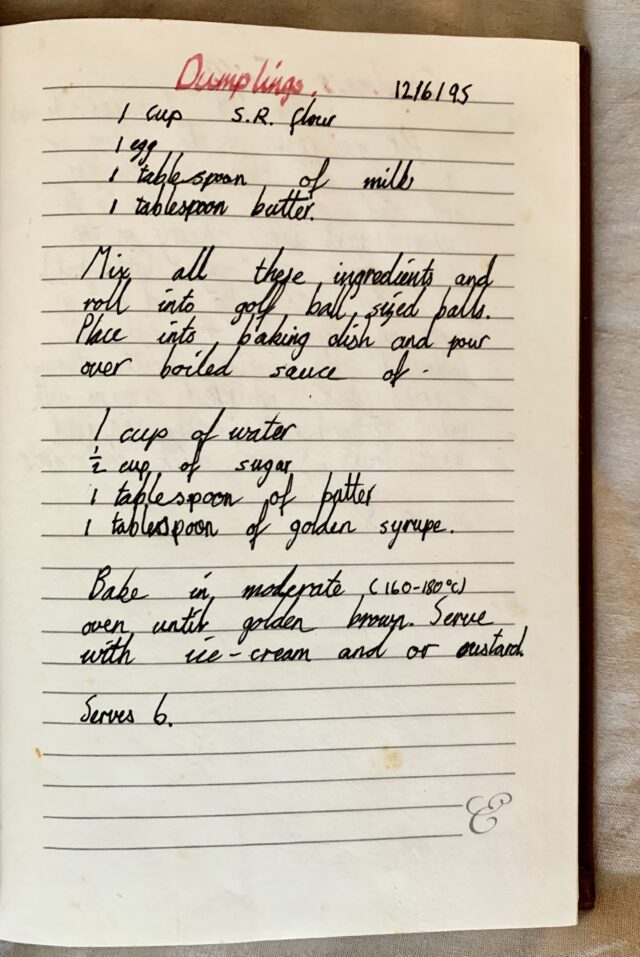 Dumplings.
12/6/95
1 cup S.R. flour
1 egg
1 tablespoon of milk
1 tablespoon butter.
Mix all these ingredients and
roll into golf ball sized balls.
Place into baking dish and pour
over boiled sauce of -
1 cup of water
½ cup of sugar
1 tablespoon of butter
1 tablespoon of golden syrupe.
Bake in moderate (160-180°C)
oven until golden brown. Serve
with ice-cream and or custard.
Serves 6.
E